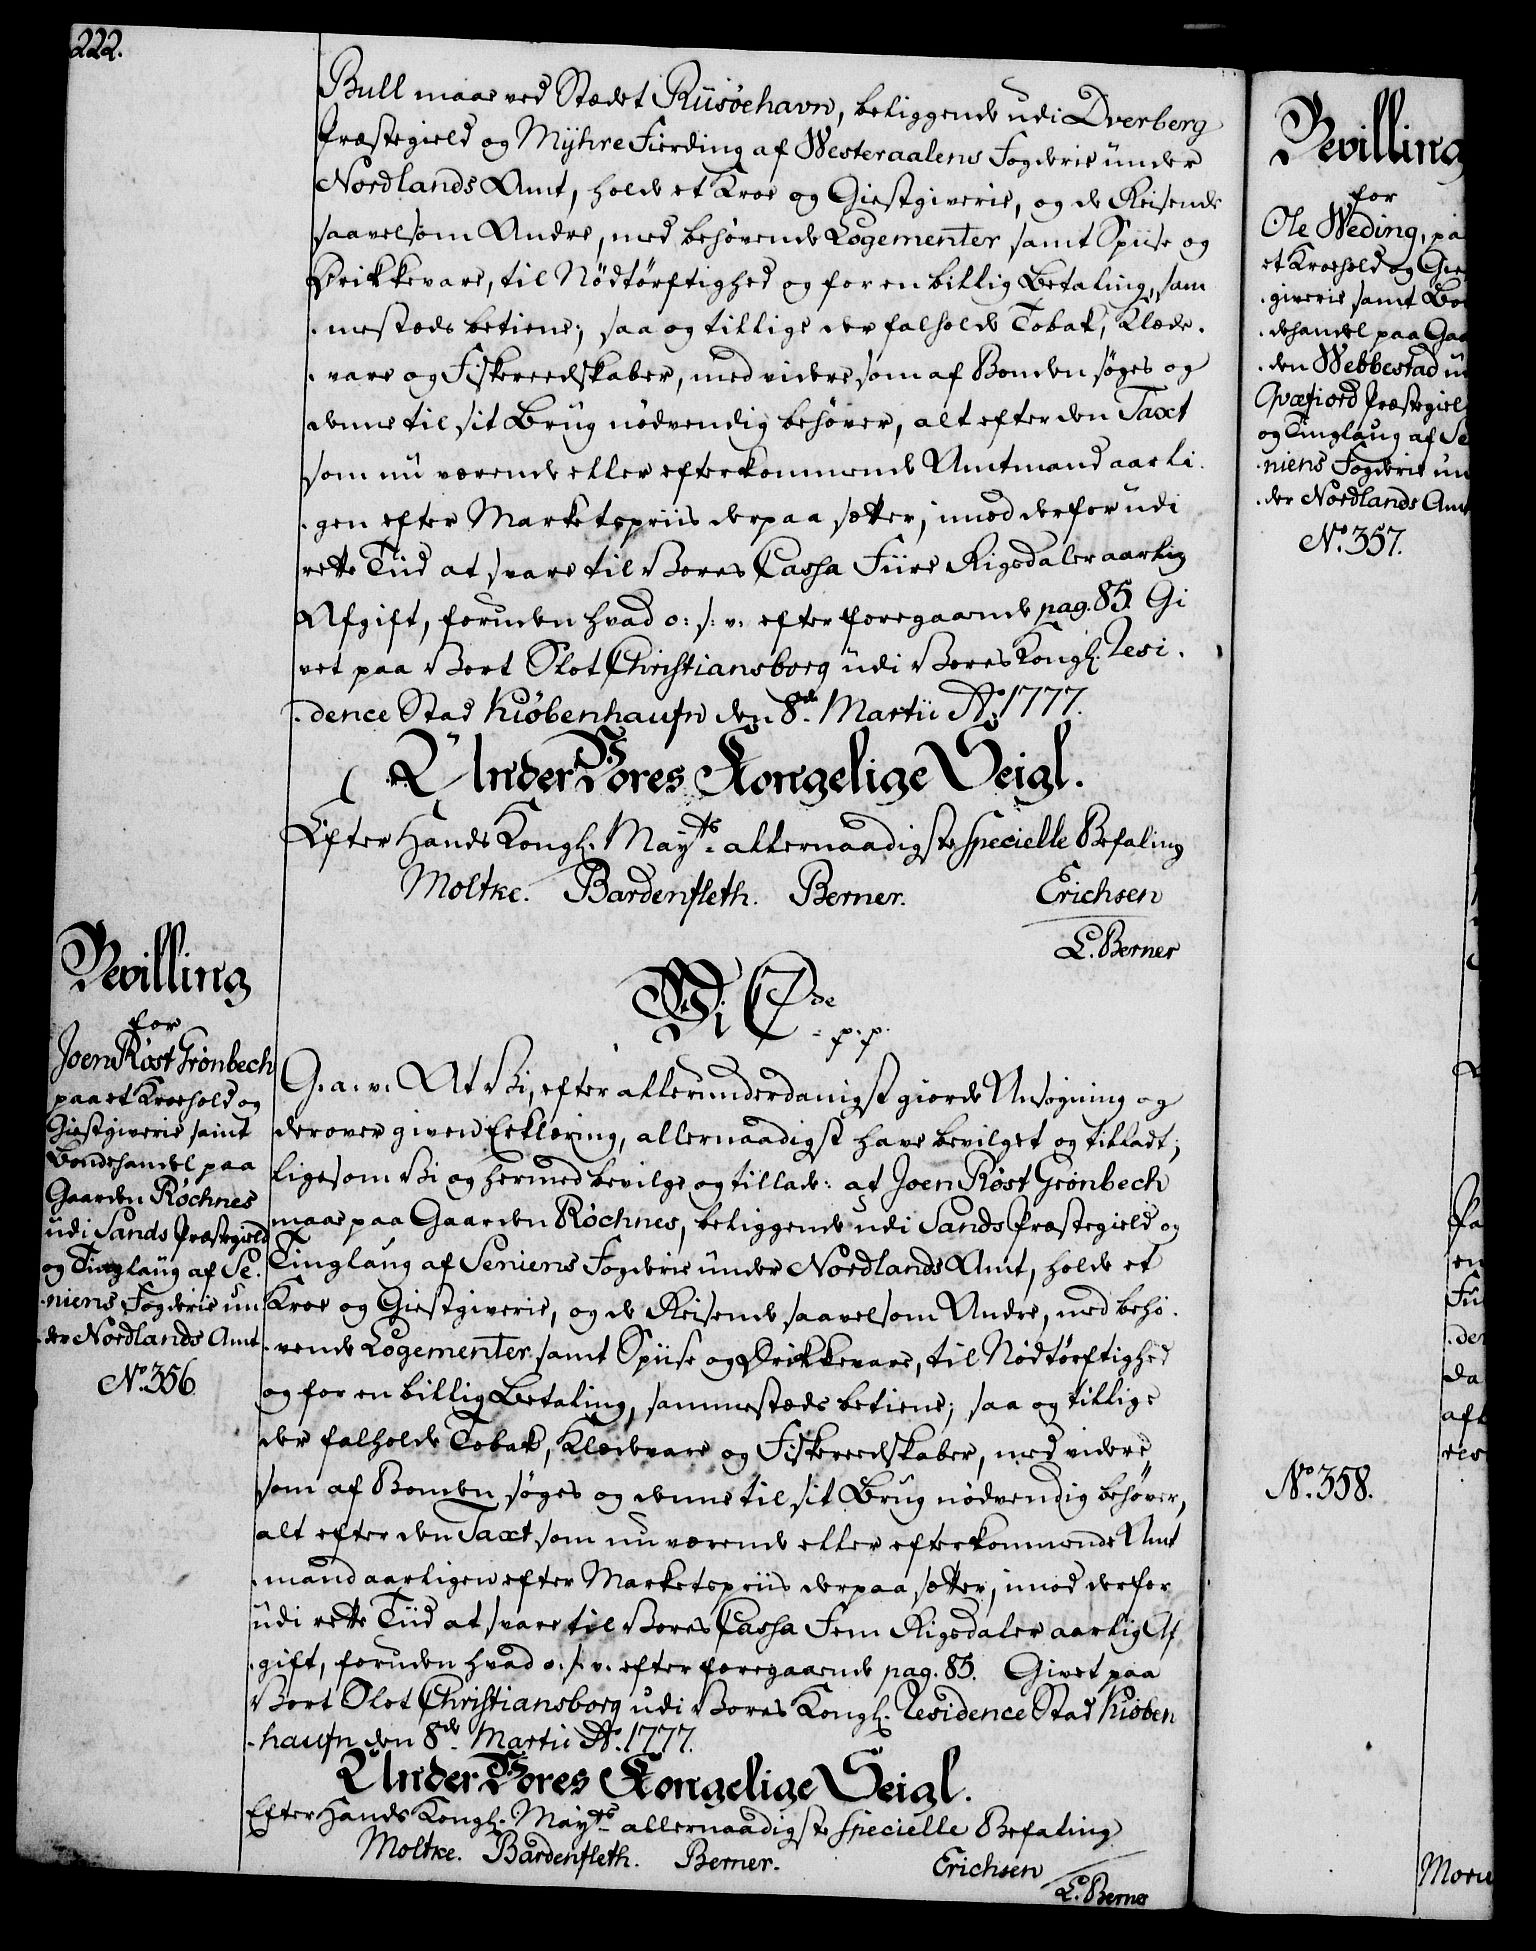 222.
Bull maae ved Stædet Riisöehavn, beliggende udi Dverberg
Præstegield og Myhre Fierding af Westeraalens Fogderie under
Nordlands Amt, holde et Kroe og Giestgiverie, og de Reisende
saavelsom Andre, med behøvende Logementer samt Spiise og
Drikkevare, til Nödtörftighed og for en billig Betaling, sam
. mestæds betiene; saa og tillige der falholde Tobak, Klæde.
. vare og Fiskereedskaber, med videre som af Bonden söges og
denne til sit Brug nödvendig behöver, alt efter den Taxt
som nu værende eller efterkommende Amtmand aarli.
. gen efter Marketspriis derpaa sætter, imod derfor udi
rette Tiid at svare til Vores Cassa Fiire Rigsdaler aarlig
Afgift, foruden hvad o: s: v: efter foregaaende pag. 85. Gi
vet paa Vort Slot Christiansborg udi Vores Kongl. Resi.
. dence Stad Kiöbenhaufn den 8de Martii Ao. 1777.
Under Vores Kongelige Seigl.
Efter Hands Kongl. Mayts. allernaadigste specielle Befaling
Moltke. Bardenfleth. Berner. Erichsen
L. Berner
Bevilling
for
Joen Røst Grönbech
paa et Kroehold og
Giestgiverie samt
Bondehandel paa
Gaarden Röchnes
udi Sands Præstegield
og Tinglaug af Se.
. niens Fogderie un
. der Nordlands Amt.
No. 356
Vi C 7de p. p.
G. a. v. At Vi, efter allerunderdanigst giorde Ansögning og
derover given Erklæring, allernaadigst have bevilget og tilladt,
ligesom Vi og hermed bevilge og tillade: at Joen Röst Grönbech
maae paa Gaarden Röchnes, beliggende udi Sands Præstegield og
Tinglaug af Seniens Fogderie under Nordlands Amt, holde et
Kroe og Giestgiverie, og de Reisende saavelsom Andre, med behö.
. vende Logementer samt Spiise og Drikkevare, til Nödtörftighed
og for en billig Betaling, sammestæds betiene; saa og tillige
der falholde Tobak, Klædevare og Fiskereedskaber, med videre
som af Bonden söges og denne til sit Brug nödvendig behöver,
alt efter den Taxt som nu værende eller efterkommende Amt
. mand aarligen efter Marketspriis derpaa sætter, imod derfor
udi rette Tiid at svare til Vores Cassa Fem Rigsdaler aarlig Af
. gift, foruden hvad o. s. v. efter foregaaende pag. 85. Givet paa
Vort Slot Christiansborg udi Vores Kongl. Residence Stad Kiöben
. haufn den 8de Martii Ao. 1777.
Under Vores Kongelige Seigl.
Efter Hands Kongl. Mayts. allernaadigste specielle Befaling
Moltke. Bardenfleth. Berner. Erichsen
L. Berner
Bevilling
for
Ole Weding, pa
et Kroehold og Gie
. giverie samt Bon
. dehandel paa Gaa
. den Webbestad u
Qvæfiord Præstegiel
og Tinglaug af Se
. niens Fogderie un
. der Nordlands Amt
No. 357.
No. 358.